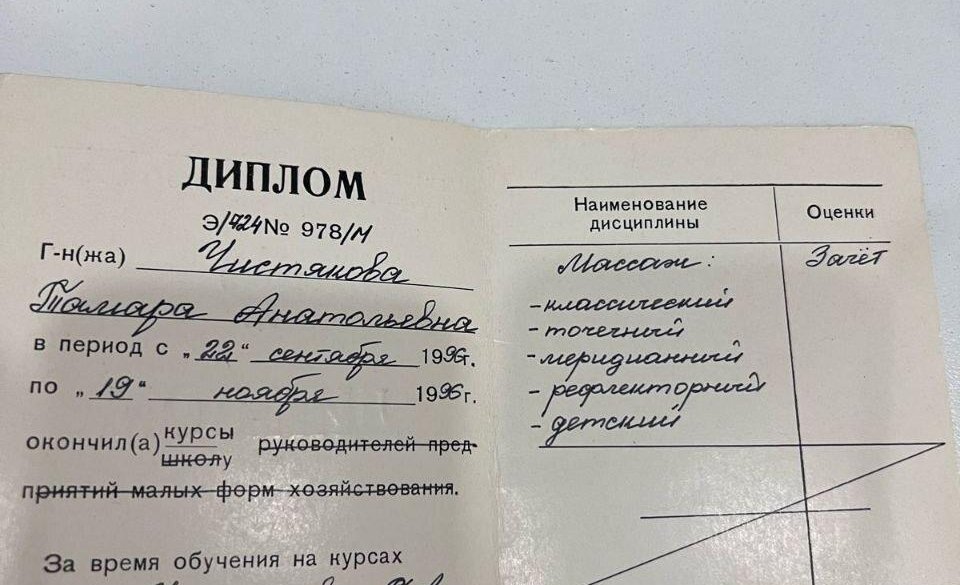 ДИПЛОМ
Э/724 № 978/М
Г-н(жа) Чистякова
Тамара Анатольевна
в период с „22“ сентября 1996г.
по „19“ ноября 1996г.
окончил(а) курсы руководителей пред-
школу
приятий малых форм хозяйствования.
За время обучения на курсах
Наименование дисциплины
Оценки
Массаж: Зачёт
-классический
-точечный
-меридианный
-рефлекторный
-детский